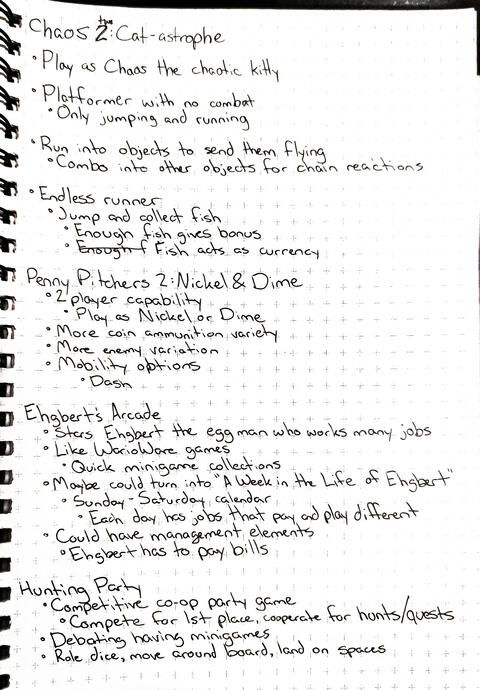 Chaos 2: Cat-astrophe
• Play as Chaos the chaotic kitty
• Platformer with no combat
• Only jumping and running
• Run into objects to send them flying
• Combo into other objects for chain reactions
• Endless runner
• Jump and collect fish
• Enough fish gives bonus
• Enough f Fish acts as currency
Penny Pitchers 2: Nickel & Dime
• 2 player capability
• Play as Nickel or Dime
• More coin ammunition variety
• More enemy variation
• Mobility options
• Dash
Ehgbert's Arcade
• Stars Ehgbert the egg man who works many jobs
• Like WarioWare games
• Quick minigame collections
• Maybe could turn into "A Week in the Life of Ehgbert"
• Sunday-Saturday calendar
• Each day has jobs that pay and play different
• Could have management elements
• Ehgbert has to pay bills
Hunting Party
• Competitive co-op party game
• Compete for 1st place, cooperate for hunts/quests
• Debating having minigames
• Role dice, move around board, land on spaces